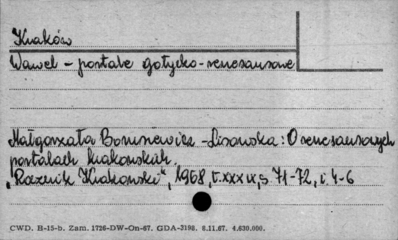 Kraków
Wawel - portale gotycko-renesansowe
Małgorzata Borusewicz-Lisowska: O renesansowych
portalach krakowskich.
"Rocznik Krakowski", 1968, t. XXXIX, s. 71-72, i. 4-6
CWD. H-15-b. Zam. 1726-DW-On-67. GDA-3198. 6.11.67. 4.630.000.